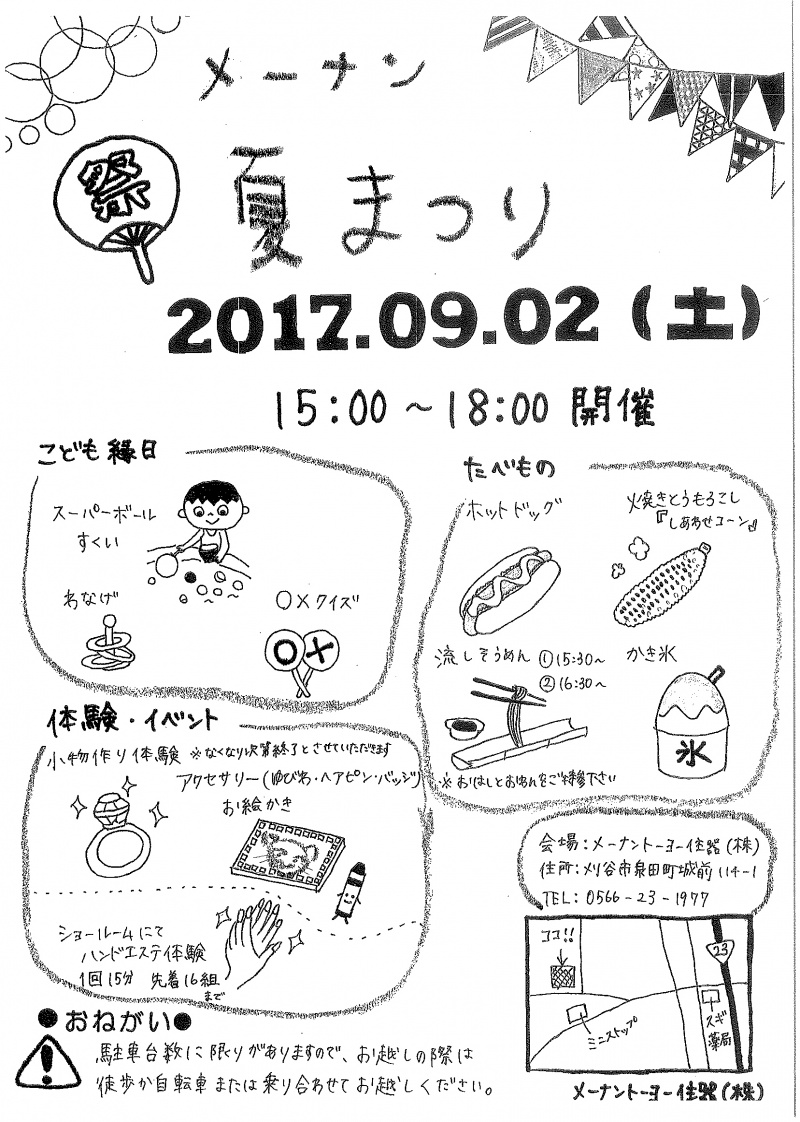 メーナン
祭
夏まつり
2017.09.02(土)
15:00～18:00 開催
こども縁日
スーパーボール
すくい
わなげ
○×クイズ
○ ×
たべもの
ホットドッグ
火焼きとうもろこし
『しあわせコーン』
流しそうめん ①15:30～
②16:30～
かき氷
氷
※おはしとおわんをご持参下さい
体験・イベント
小物作り体験 ※なくなり次第終了とさせていただきます
アクセサリー(ゆびわ・ヘアピン・バッジ)
お絵かき
ショールームにて
ハンドエステ体験
1回15分 先着16組
まで
会場:メーナントーヨー住器(株)
住所:刈谷市泉田町城前114-1
TEL:0566-23-1977
ココ!!
23
ミニストップ
スギ
薬局
メーナントーヨー住器(株)
●おねがい●
駐車台数に限りがありますので、お越しの際は
徒歩か自転車または乗り合わせてお越しください。